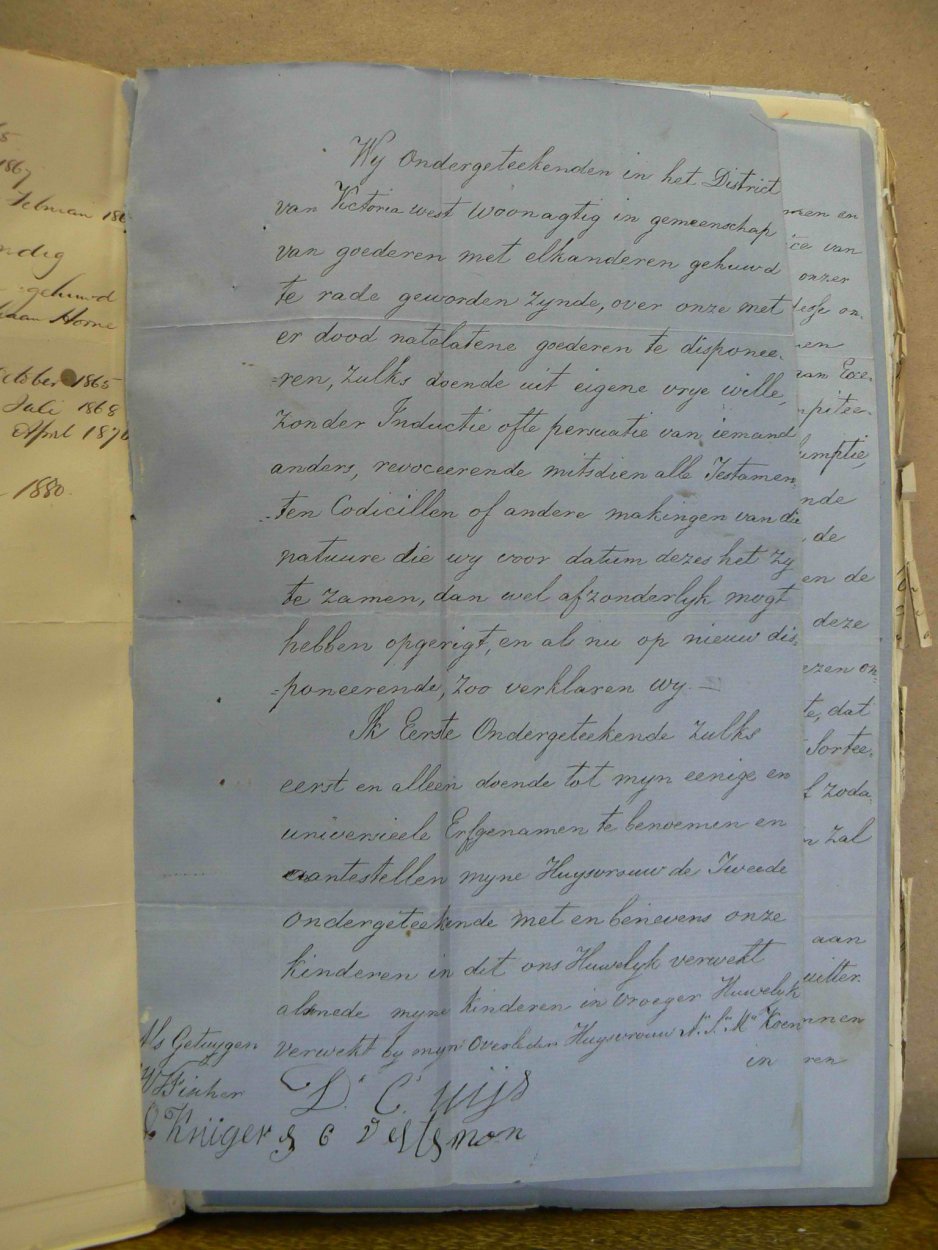 1867
Februari 186
ndig
gehuwd
Horne
October 1865
Juli 1868
April 1870
1880.
Wy Ondergeteekenden in het District
van Victoria west woonagtig in gemeenschap
van goederen met elkanderen gehuwd
te rade geworden zynde, over onze met
er dood natelatene goederen te disponee-
=ren, zulks doende uit eigene vrye wille,
zonder Inductie ofte persuatie van iemand
anders, revoceerende mitsdien alle Testamen
=ten Codicillen of andere makingen van die
natuure die wy voor datum dezes het zy
te zamen, dan wel afzonderlyk mogt
hebben opgerigt, en als nu op nieuw dis-
=poneerende, zoo verklaren wy. —
Ik Eerste Ondergeteekende zulks
eerst en alleen doende tot myn eenige en
universieele Erfgenamen te benoemen en
aantestellen myne Huysvrouw de Tweede
ondergeteekende met en benevens onze
kinderen in dit ons Huwelyk verwekt
alsmede myne kinderen in vroeger Huwelyk
verwekt by myn Overleden Huysvrouw
in
Als Getuygen
W Fischer
Krüger
D. C.
men en
van
onzer
en
van Exce-
umptie,
nde
de
en de
deze
ezen on-
te, dat
Sortee-
f zoda
n zal
aan
uitter
nnen
ren